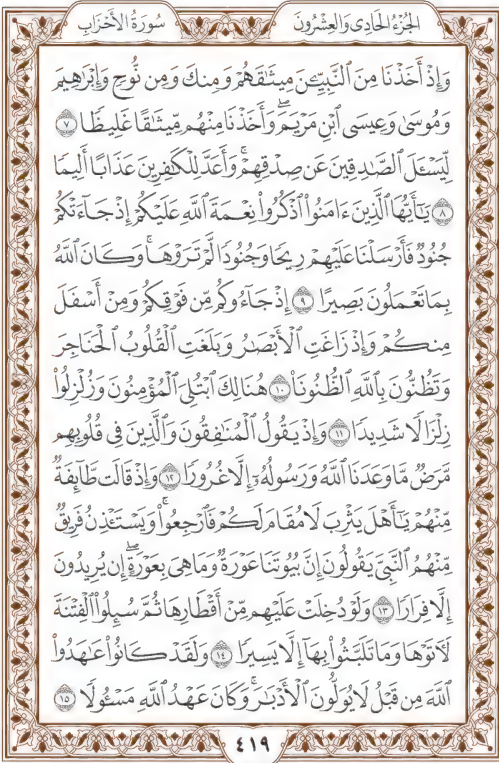 الجُزْءُ الحَادِى وَالعِشْرُونَ
سُورَةُ الأَحْزَابِ
وَإِذْ أَخَذْنَا مِنَ ٱلنَّبِيِّـۧنَ مِيثَـٰقَهُمْ وَمِنكَ وَمِن نُّوحٍ وَإِبْرَٰهِيمَ
وَمُوسَىٰ وَعِيسَى ٱبْنِ مَرْيَمَ ۖ وَأَخَذْنَا مِنْهُم مِّيثَـٰقًا غَلِيظًا ٧
لِّيَسْـَٔلَ ٱلصَّـٰدِقِينَ عَن صِدْقِهِمْ ۚ وَأَعَدَّ لِلْكَـٰفِرِينَ عَذَابًا أَلِيمًا
٨ يَـٰٓأَيُّهَا ٱلَّذِينَ ءَامَنُوا۟ ٱذْكُرُوا۟ نِعْمَةَ ٱللَّهِ عَلَيْكُمْ إِذْ جَآءَتْكُمْ
جُنُودٌ فَأَرْسَلْنَا عَلَيْهِمْ رِيحًا وَجُنُودًا لَّمْ تَرَوْهَا ۚ وَكَانَ ٱللَّهُ
بِمَا تَعْمَلُونَ بَصِيرًا ٩ إِذْ جَآءُوكُم مِّن فَوْقِكُمْ وَمِنْ أَسْفَلَ
مِنكُمْ وَإِذْ زَاغَتِ ٱلْأَبْصَـٰرُ وَبَلَغَتِ ٱلْقُلُوبُ ٱلْحَنَاجِرَ
وَتَظُنُّونَ بِٱللَّهِ ٱلظُّنُونَا۠ ١٠ هُنَالِكَ ٱبْتُلِىَ ٱلْمُؤْمِنُونَ وَزُلْزِلُوا۟
زِلْزَالًا شَدِيدًا ١١ وَإِذْ يَقُولُ ٱلْمُنَـٰفِقُونَ وَٱلَّذِينَ فِى قُلُوبِهِم
مَّرَضٌ مَّا وَعَدَنَا ٱللَّهُ وَرَسُولُهُۥٓ إِلَّا غُرُورًا ١٢ وَإِذْ قَالَت طَّآئِفَةٌ
مِّنْهُمْ يَـٰٓأَهْلَ يَثْرِبَ لَا مُقَامَ لَكُمْ فَٱرْجِعُوا۟ ۚ وَيَسْتَـْٔذِنُ فَرِيقٌ
مِّنْهُمُ ٱلنَّبِىَّ يَقُولُونَ إِنَّ بُيُوتَنَا عَوْرَةٌ وَمَا هِىَ بِعَوْرَةٍ ۖ إِن يُرِيدُونَ
إِلَّا فِرَارًا ١٣ وَلَوْ دُخِلَتْ عَلَيْهِم مِّنْ أَقْطَارِهَا ثُمَّ سُئِلُوا۟ ٱلْفِتْنَةَ
لَـَٔاتَوْهَا وَمَا تَلَبَّثُوا۟ بِهَآ إِلَّا يَسِيرًا ١٤ وَلَقَدْ كَانُوا۟ عَـٰهَدُوا۟
ٱللَّهَ مِن قَبْلُ لَا يُوَلُّونَ ٱلْأَدْبَـٰرَ ۚ وَكَانَ عَهْدُ ٱللَّهِ مَسْـُٔولًا ١٥
٤١٩